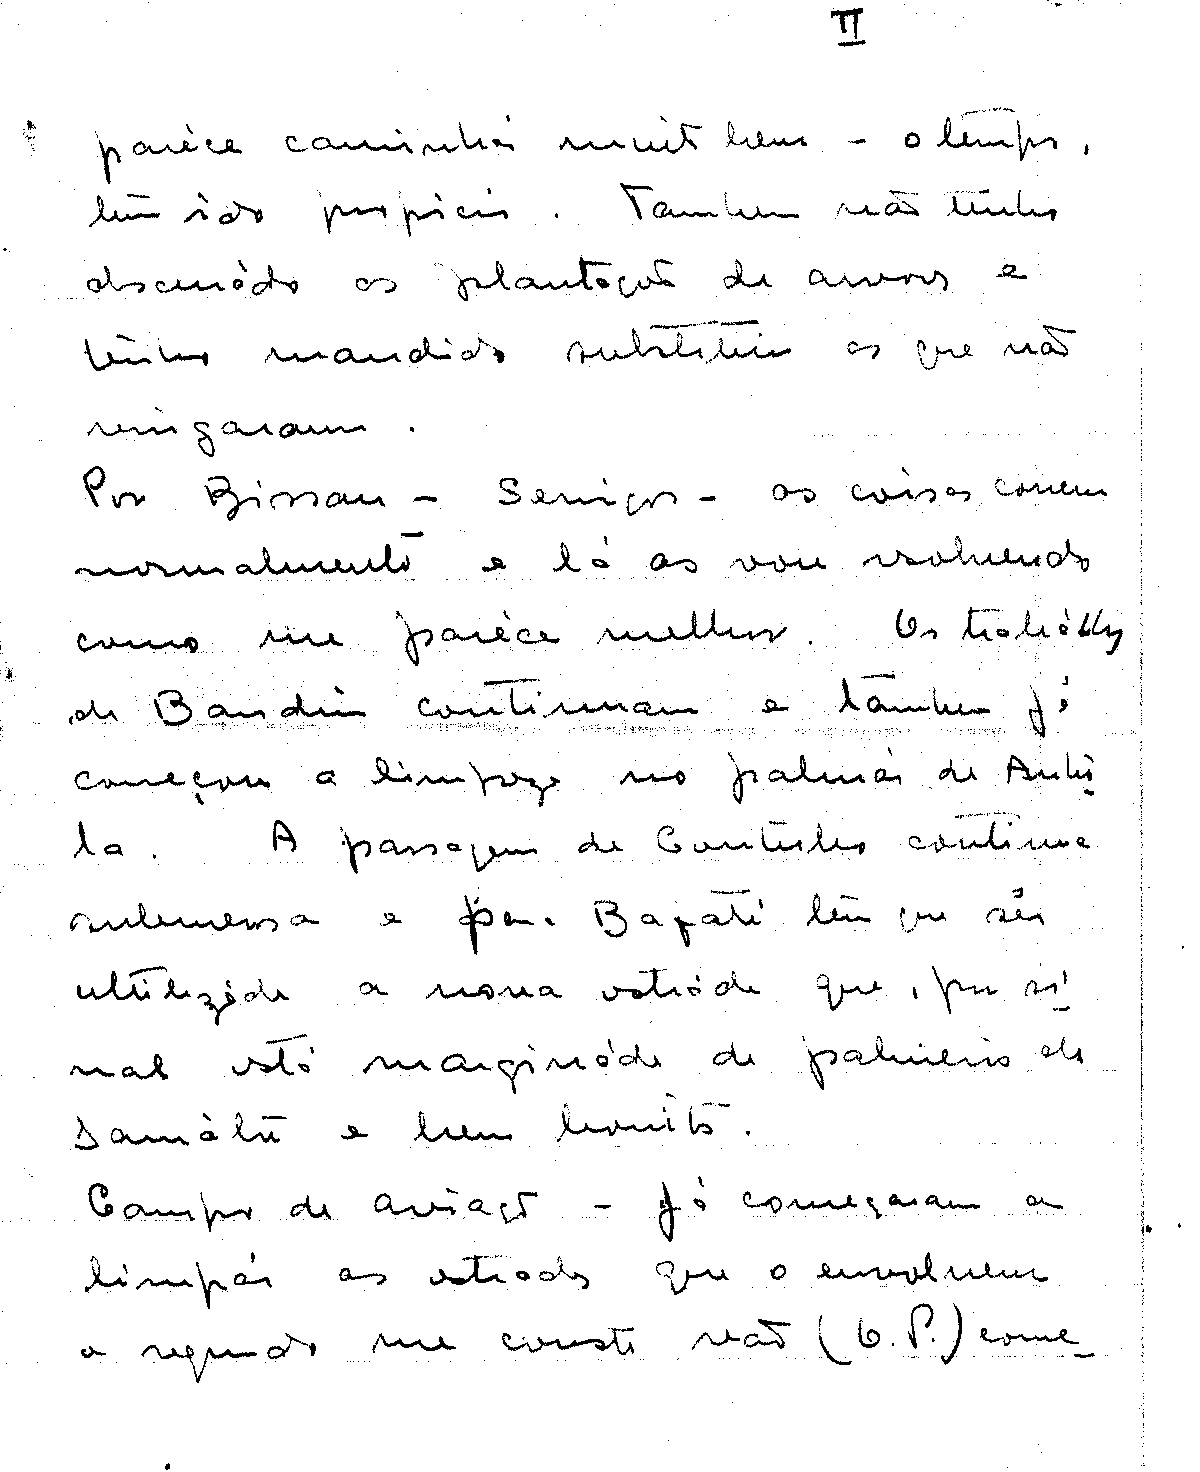 II
paréce caminhár muito bem - o tempo,
tem sido propício. Tambem não tenho
descurádo as plantações de arvores e
tenho mandado substituir as que não
vingaram.
Por Bissau - Serviços - as coisas correm
normalmente e lá as vou resolvendo
como me paréce melhor. Os trabálhos
de Bandim continuam e tambem já
começou a limpeza no palmár de Antu-
la. A passagem de Contubo continua
submersa e para Bafatá tem que sêr
utilizáda a nova estráda que, por si-
nal está margináda de palmeiras de
Samátra e bem bonita.
Campo de aviação - Já começaram a
limpár as estradas que o envolvem
e segundo me consta vão (O.P.) come-